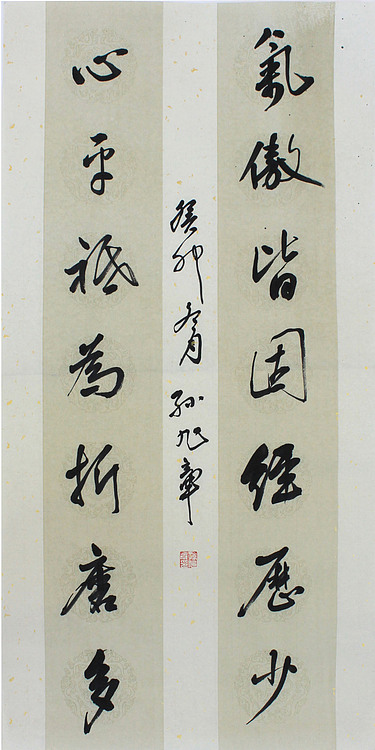 氣傲皆因經歷少
癸卯冬月孙旭章
心平祗為折磨多